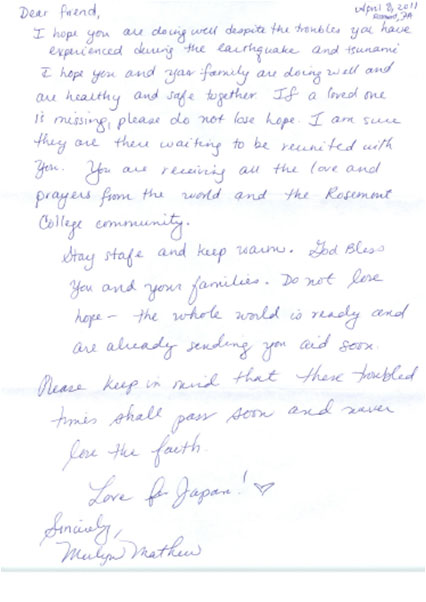 Dear friend,
April 8, 2011
Rosemont, PA
I hope you are doing well despite the troubles you have
experienced during the earthquake and tsunami
I hope you and your family are doing well and
are healthy and safe together. If a loved one
is missing, please do not lose hope. I am sure
they are there waiting to be reunited with
you. You are receiving all the love and
prayers from the world and the Rosemont
College community.
Stay stafe and keep warm. God Bless
you and your families. Do not lose
hope - the whole world is ready and
are already sending you aid soon.
Please keep in mind that these troubled
times shall pass soon and never
lose the faith.
Love for Japan! ♡
Sincerely,
Merlyn Mathew